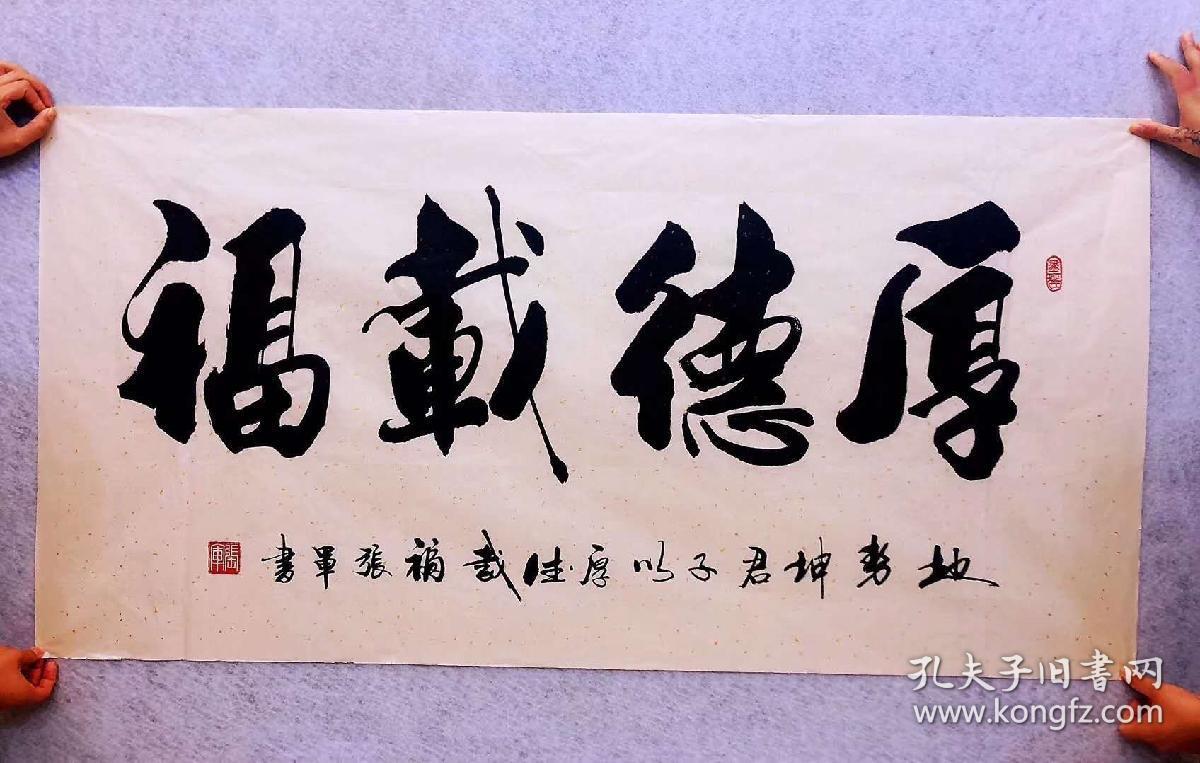 厚德載福
地势坤君子以厚德載福張軍書
張軍
孔夫子旧书网
www.kongfz.com